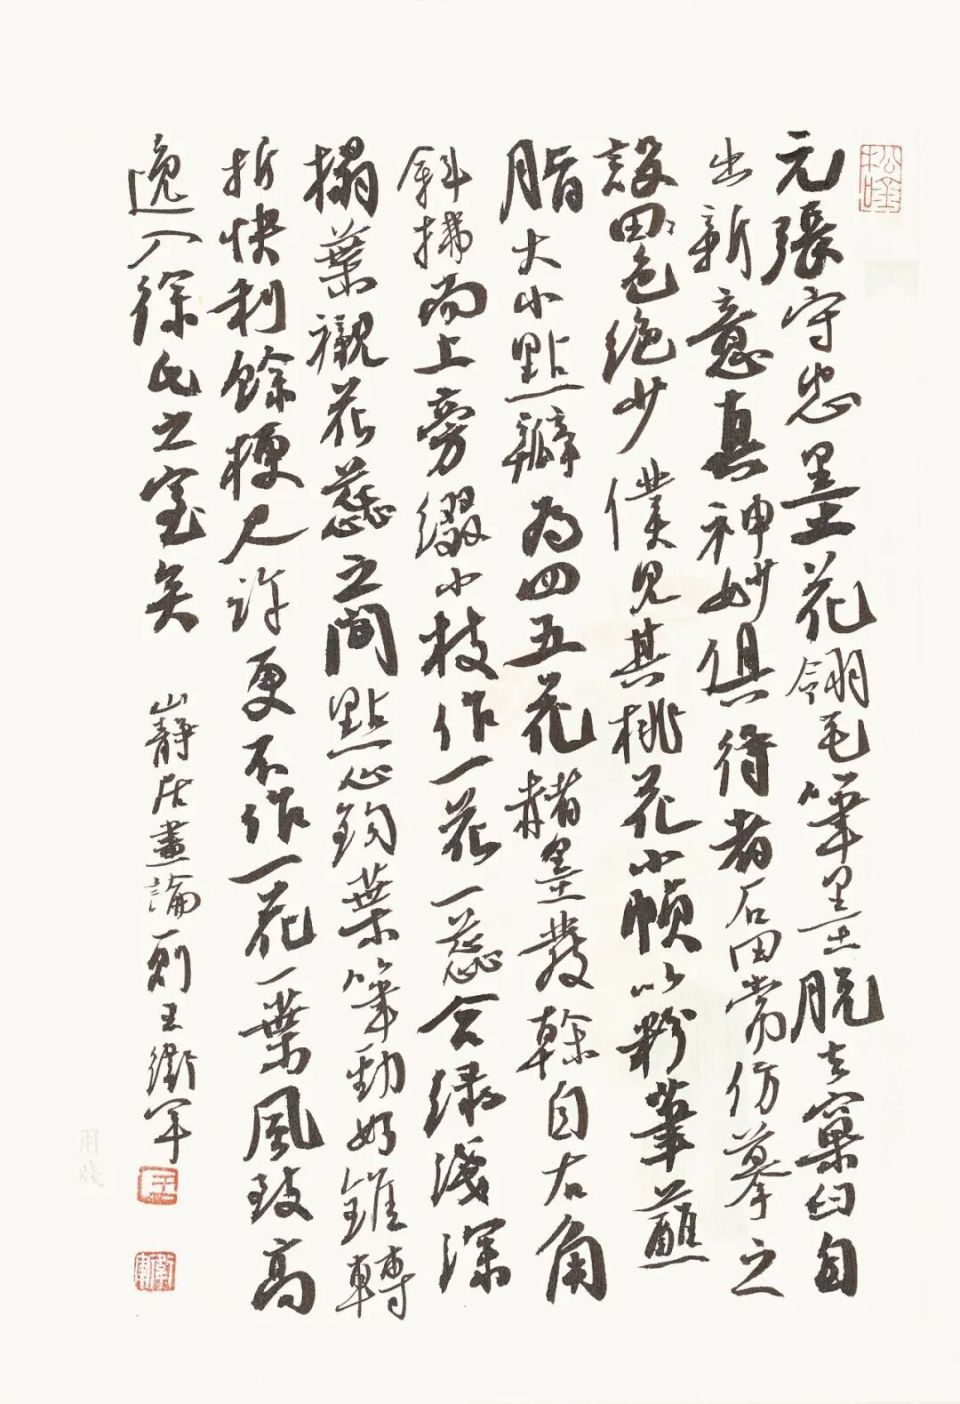 松
元張守忠墨花翎毛筆墨脫去窠臼自
出新意真神妙俱得者石田常仿摹之
設田色絕少僕見其桃花小幀以粉筆蘸
脂大小點瓣為四五花赭墨發榦自右角
斜拂而上旁綴小枝作一花一蕊合綠淺深
搨葉襯花蕊之間點心鈎葉筆勁如錐轉
折快利餘梗尺許更不作一花一葉風致高
逸入徐氏之室矣
山靜居畫論一則王衛軍
王
衛軍
用牋